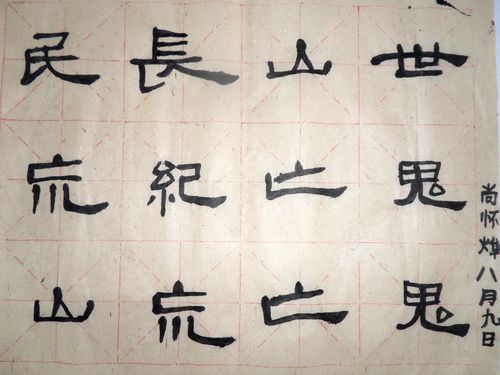 民長山世
㐬紀亡鬼
山㐬亡鬼
尚怀烨八月九日